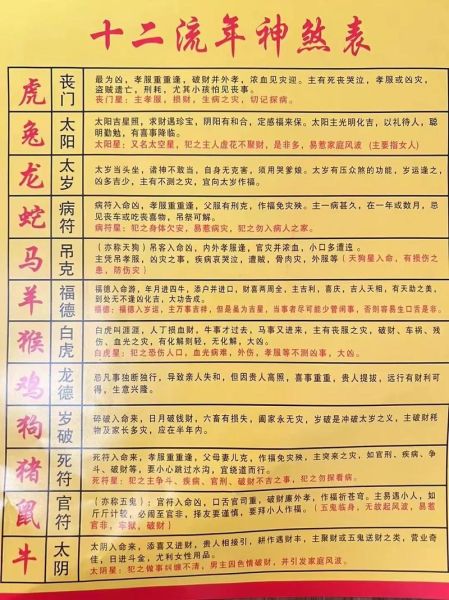 十二流年神煞表
虎
丧门
最为凶，孝服重重逢，破财并外孝，浓血见灾迎。主有死丧哭泣，孝服或凶灾，
盗贼遗亡，刑耗，尤其小孩怕见丧事。
丧门星：主孝服，损财，生病之灾，切记探病。
兔
太阳
太阳吉星照，求财遇珍宝，阴阳有和合，定感福来保。太阳主光明化吉，以礼待人，聪
明勤勉，有喜事降临。
太阳星：又名太空星，犯之主人虚花不聚财，是非多，易惹家庭风波（主要指女人）
龙
太岁
太岁当头坐，诸神不敢当，自身无克害，须用哭爹娘。太岁有压众煞的功能，岁运逢之，
凶多吉少，主有不测之灾，宜向太岁作福。
蛇
病符
病符入命凶，孝服重重逢，父服有刑克，作福免灾殃。主一病甚久，在一年或数月，忌
见丧车或吃丧喜物，吊祭可解。
病符星：犯之身体欠安，易惹病灾，犯之勿入病人之家。
马
吊克
（亦称天狗）吊客入命凶，内外孝服逢，官灾并浓血，小口多遭连。
主凭吊孝服，凶灾之事，疾病哀哭泣，遭贼，骨肉灾，外服等（天狗星入命，有损伤之
患，防伤灾）
羊
福德
福德入命游，年月进四牛，添户并进口，财喜两周全，主吉利，喜庆，吉人天相，有天助之美，
到处无不逢凶化吉，大功告成。
福德：福德入岁运，主万事吉祥，但是虽为吉星，当事者尽可能少管闲事，否则容易生口舌是非。
猴
白虎
白虎叫涯涯，人丁损血财，牛事才过去，马事又进来，主有丧服之灾，破财、车祸、残
伤、血光之灾，有化解则轻，无化解，大凶。
白虎星：犯之恐伤人口，血光病难，外伤，孝服等不测凶事，大凶。
鸡
龙德
忌凡事独断独行，导致亲人失和，但因贵人高照，喜事重重，贵人提拔，远行有财利可
得，生意兴隆。
狗
岁破
碎破入命来，日月破钱财，六畜有损失，阖家永无灾，岁破是冲破太岁之义，主破财耗
物及家长多灾，应在半年内。
猪
死符
死符入命来，孝服重重逢，父母妻儿克，作福免灾殃。主突来之灾，如官刑、疾病、争
斗、破财等，要小心跳过水沟，宜绕道而行。
死符星：犯之主争斗、疾病、官刑、破财不吉之事，犯之勿探看病。
鼠
官符
（亦称五鬼）：官符入命凶，口舌官司重，破财廉外孝，作福祈苍穹。主易遇小人，如
斤斤计较，必闹至官非，择友要谨慎，要拜小人作福。（五鬼临身，无故起风波，易惹
官非，牢狱，破财）
牛
太阴
太阴入命来，添喜又进财，贵人相接引，耕作遇财丰，主聚财或五鬼送财之类，营业奇
佳，日进斗金，尤利女性用品。
太阴星：犯之做事纠缠不清，男主因色情破财，并引发家庭风波。